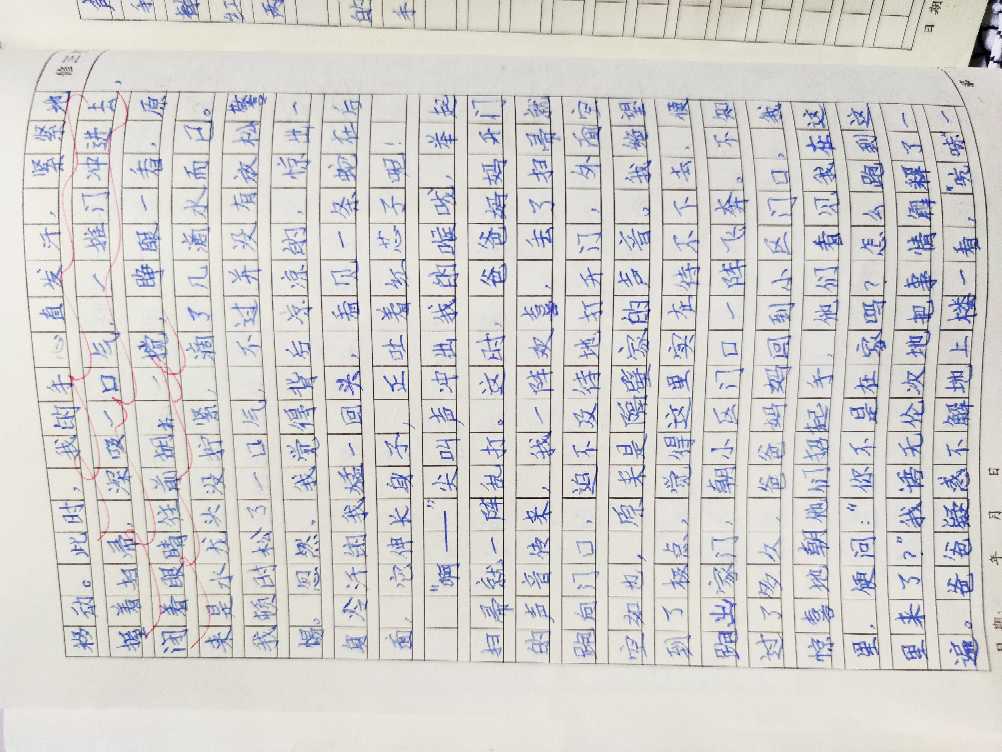 移动。此时,我的手心直发汗,紧紧地
握着扫帚,深吸一口气,一推门冲进上
闭着眼睛往前胡一撞,睁眼一看,原
来是水龙头没拧紧,滴了几滴水而已。
我顿时松了一口气,不过并没有放松警
惕。忽然,我觉得背后凉凉的,惊出一
身冷汗的我猛一回头,看见一条蛇在后
面,它伸长身子,正吐着红芯子呢!
“啊——”尖叫声冲出我的喉咙,举起
扫帚就一阵乱打。这时,爸妈妈开门
的声音传来,我一阵欢喜,丢了扫帚就
跑向门口,迫不及待地打开门,外面空
空如也,原来是隔壁家的声音。我绝望
到了极点,觉得这里实在待不下去,便
跑出家门,朝小区门口一阵飞奔。不知
过了多久,爸爸妈妈回到小区门口,我
惊喜地朝他们招起手,他们看见我在这
里,便问:“你不是在家吗?怎么跑到这
里来了?”我语无伦次地把事情解释了一
遍。爸爸疑惑不解地上楼一看,一
日期 年 月 日
日期